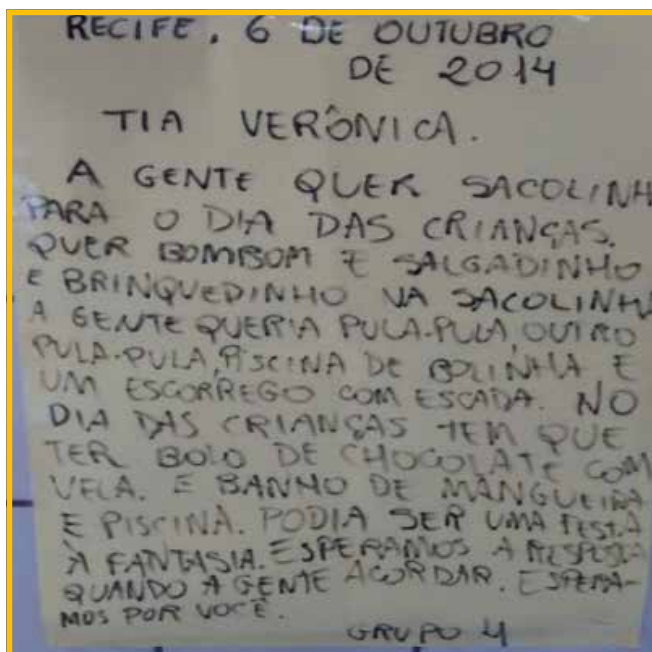 RECIFE, 6 DE OUTUBRO
DE 2014
TIA VERÔNICA.
A GENTE QUER SACOLINH
PARA O DIA DAS CRIANÇAS.
QUER BOMBOM E SALGADINHO
E BRINQUEDINHO NA SACOLINHA
A GENTE QUERIA PULA-PULA, OUTRO
PULA-PULA, PISCINA DE BOLINHA E
UM ESCORREGO COM ESCADA. NO
DIA DAS CRIANÇAS TEM QUE
TER BOLO DE CHOCOLATE COM
VELA. E BANHO DE MANGUEIRA
E PISCINA. PODIA SER UMA FESTA
À FANTASIA. ESPERAMOS A RESPOSTA
QUANDO A GENTE ACORDAR. ESPERA-
MOS POR VOCÊ.
GRUPO 4